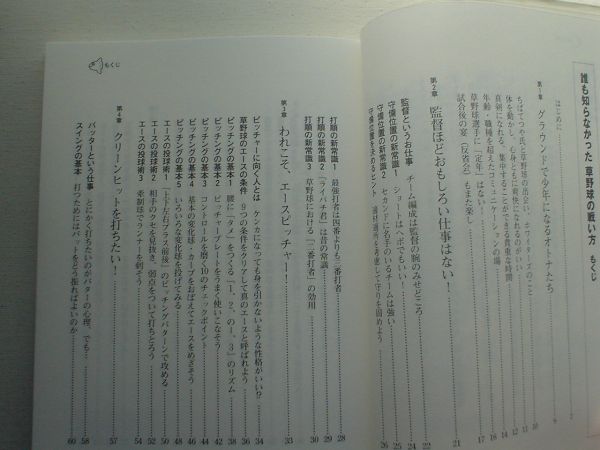 誰も知らなかった 草野球の戦い方 もくじ
はじめに 2
第1章 グラウンドで少年になるオトナたち 9
ちばてつや氏と草野球の出会い、ホワイターズのこと 10
体を動かし、心身ともに爽快になれるのがいい 11
真剣になれる、集中することができる貴重な時間 12
年齢・職種を超えたコミュニケーションの場 14
草野球選手に「定年」はない 16
試合後の宴(反省会)もまた楽し 17
第2章 監督ほどおもしろい仕事はない! 21
監督というお仕事 チーム編成は監督の腕のみせどころ 22
守備位置の新常識1 ショートはヘボでもいい! 24
守備位置の新常識2 セカンドに名手のいるチームは強い 25
守備位置を決めるヒント 適材適所を考慮して守りを固めよう 26
もくじ
打順の新常識1 最強打者は四番よりも三番打者 28
打順の新常識2 「ライパチ君」は昔の常識 29
打順の新常識3 草野球における「二番打者」の効用 30
第3章 われこそ、エースピッチャー! 33
ピッチャーに向く人とは ケンカになっても身を引かないような性格がいい!? 34
草野球のエースの条件 9つの条件をクリアして真のエースと呼ばれよう 36
ピッチングの基本1 腰に「タメ」をつくる「1、2、の1、3」のリズム 38
ピッチングの基本2 ピッチャープレートをうまく使いこなそう 42
ピッチングの基本3 コントロールを磨く10のチェックポイント 44
ピッチングの基本4 基本の変化球・カーブをおぼえてエースをめざそう 46
ピッチングの基本5 いろいろな変化球を投げてみる 48
エースの投球術1 「上下左右プラス前後」のピッチングパターンで攻める 50
エースの投球術2 相手のクセを見抜き、弱点をついて打ちとろう 52
エースの投球術3 牽制球でランナーを刺そう 54
第4章 クリーンヒットを打ちたい! 57
バッターという仕事 とにかく打ちたいのがバッターの心理、でも… 58
スイングの基本 打つためにはバットをどう振ればよいのか 60